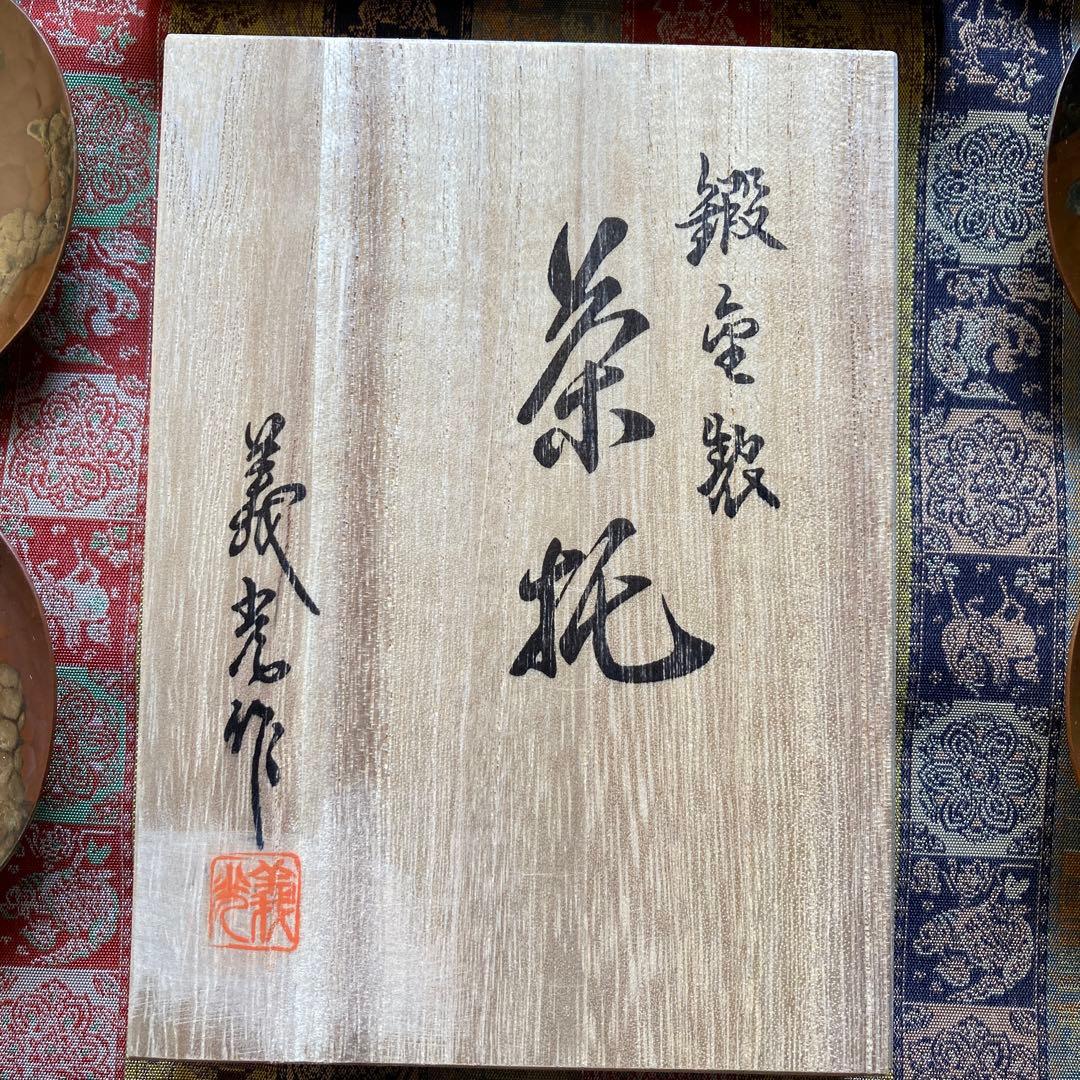 鍛金製
茶托
義光作
義光